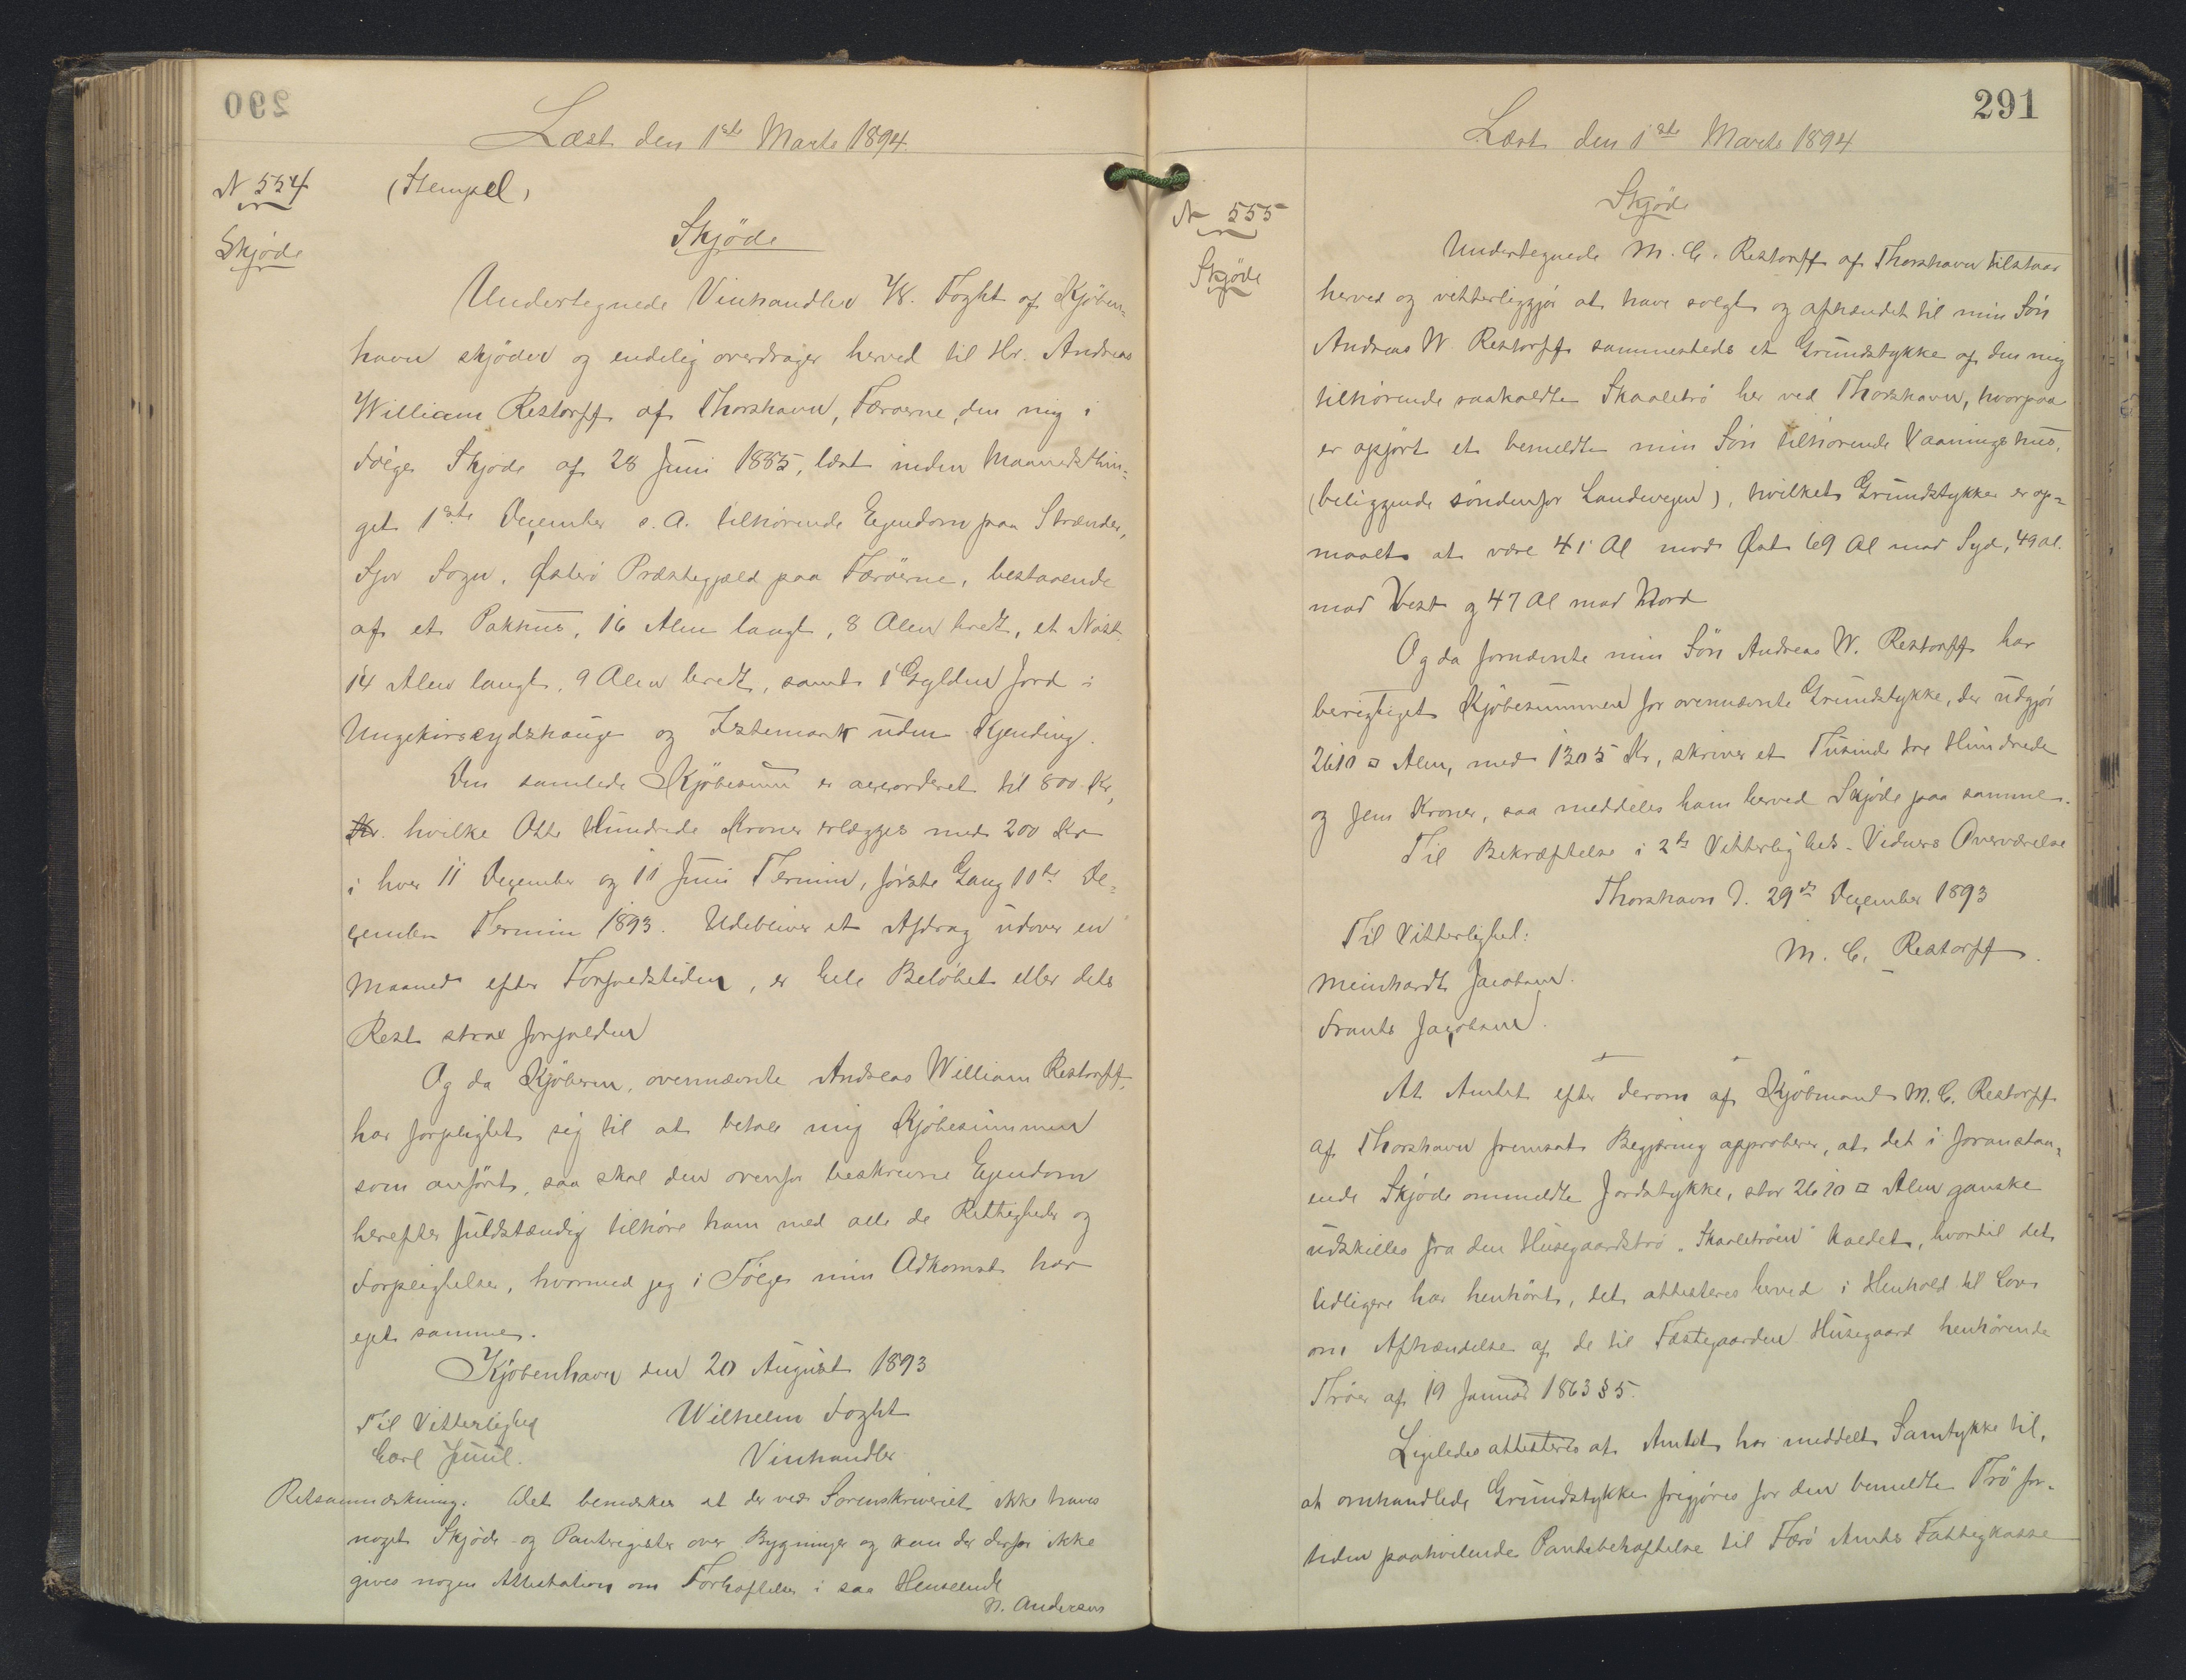 290
Læst den 1ste Marts 1894.
N 554
(Stempel)
Skjøde
Skjöde
Undertegnede Vinhandler W. Foght af Kjöben-
havn skjöder og endelig overdrager herved til Hr. Andreas
William Restorff af Thorshavn, Færøerne, den mig i
Fölge Skjøde af 28 Juni 1885, læst inden Maanedsthin-
get 1ste December s. A. tilhørende Ejendom paa Strænder,
Sjov Sogn, Østerö Præstegjæld paa Færöerne, bestaaende
af et Pakhus, 16 Alen langt, 8 Alen bredt, et Nöst
14 Alen langt, 9 Alen bredt, samt 1 Gylden Jord i
og uden Kjending.
Den samlede Kjöbesum er accorderet til 800 Kr,
hvilke Otte Hundrede Kroner erlægges med 200 Kr
i hver 11 December og 11 Juni Termin, første Gang 11te De-
cember Termin 1893. Udebliver et Afdrag udover en
Maaned efter Forfaldstiden, er hele Belöbet eller dets
Rest strax forfalden
Og da Kjöberen, ovennævnte Andreas William Restorff,
har forpligtet sig til at betale mig Kjöbesummen
som anført, saa skal den ovenfor beskrevne Ejendom
herefter fuldstændig tilhöre ham med alle de Rettigheder og
Forpligtelser, hvormed jeg i Fölge min Adkomst har
ejet samme.
Kjöbenhavn den 20 August 1893
Til Vitterlighed Wilhelm Foght
Carl Juul. Vinhandler
Retsanmærkning. Det bemærkes at der ved Sorenskriveriet ikke haves
noget Skjöde- og Panteregister over Bygninger og kan der derfor ikke
gives nogen Attestation om Forhæftelser i saa Henseende
N. Andersen
291
Læst den 1ste Marts 1894
N 555
Skjöde
Skjöde
Undertegnede M. C. Restorff af Thorshavn tilstaar
herved og vitterliggjör at have solgt og afhændet til min Sön
Andreas W. Restorff sammesteds et Grundstykke af den mig
tilhörende saakaldte Skaaletrö her ved Thorshavn, hvorpaa
er opfört et bemeldte min Sön tilhörende Vaaningshus,
(beliggende söndenfor Landevejen), hvilket Grundstykke er op-
maalt at være 41 Al mod Øst 69 Al mod Syd, 49 Al.
mod Vest og 47 Al mod Nord
Og da fornævnte min Sön Andreas W. Restorff har
berigtiget Kjöbesummen for ovennævnte Grundstykke, der udgjör
2610 □ Alen, med 1305 Kr, skriver et Tusinde tre Hundrede
og fem Kroner, saa meddeles ham herved Skjöde paa samme.
Til Bekræftelse i 2de Vitterligheds-Vidners Overværelse
Thorshavn d. 29de December 1893
Til Vitterlighed:
M. C. Restorff.
Meinhardt Jacobsen.
Frants Jacobsen.
At Amtet efter derom af Kjöbmand M. C. Restorff
af Thorshavn fremsat Begjæring approberer, at det i foranstaa-
ende Skjöde ommeldte Jordstykke, stor 2610 □ Alen ganske
udskilles fra den Husegaardströ „Skaaletröen" kaldet, hvortil det
tidligere har henhört, det attesteres herved i Henhold til Lov
om Afhændelse af de til Fæstegaarden Husegaard henhörende
Tröer af 19 Januar 1863 § 5.
Ligeledes attesteres at Amtet har meddelt Samtykke til,
at omhandlede Grundstykke frigjöres for den bemeldte Trö for-
tiden paahvilende Pantebehæftelse til Færö Amts Fattigkasse